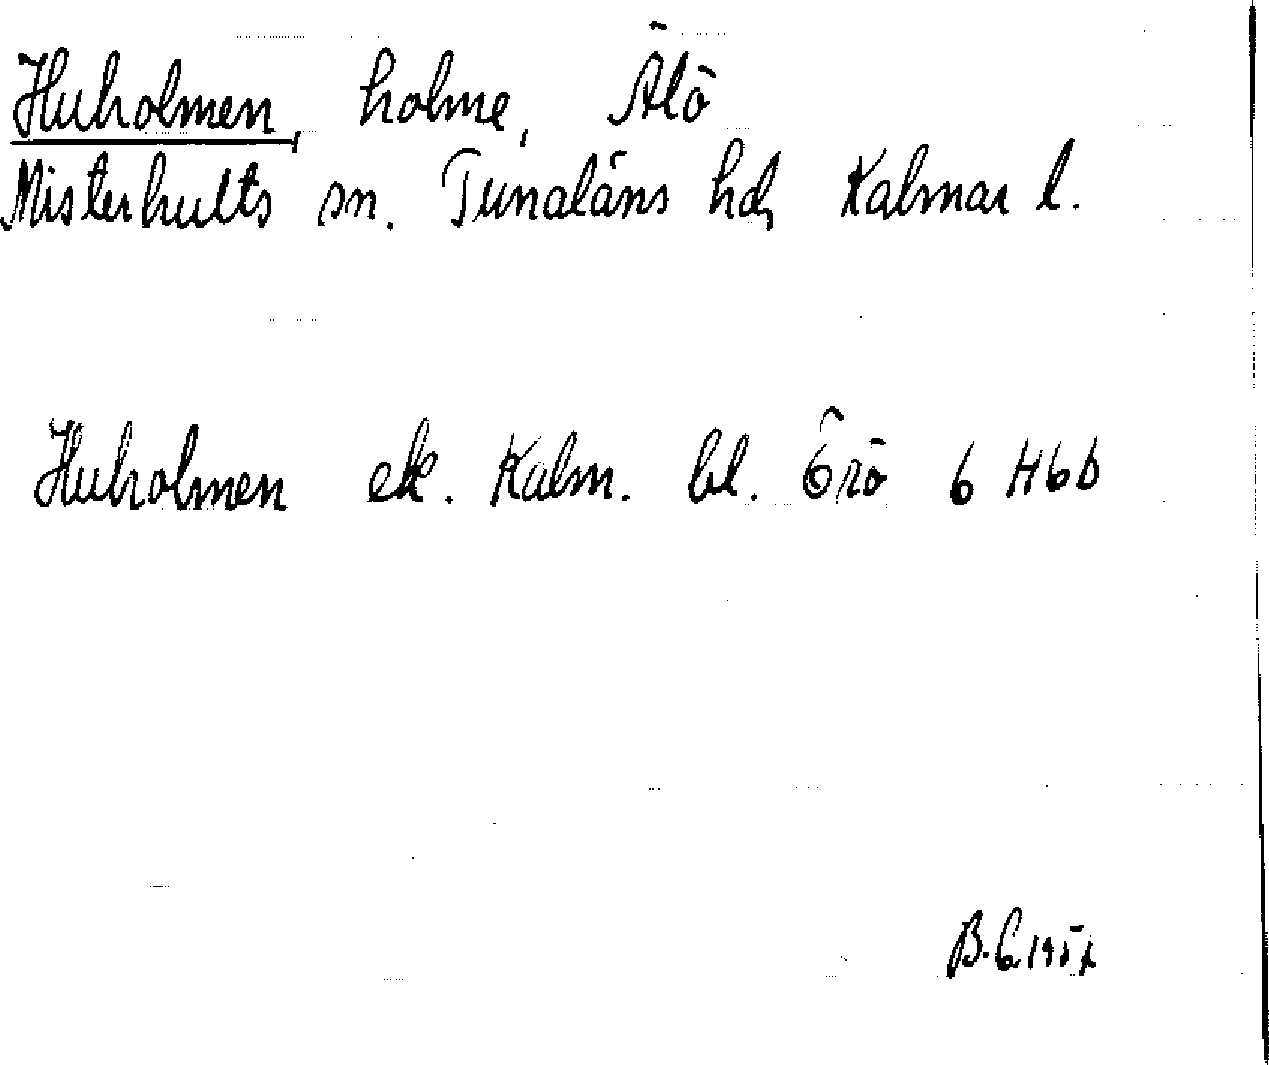 Huholmen, holme, Älö
Misterhults sn. Tunaläns hd, Kalmar l.
Huholmen ek. Kalm. bl. Örö 6 H6b